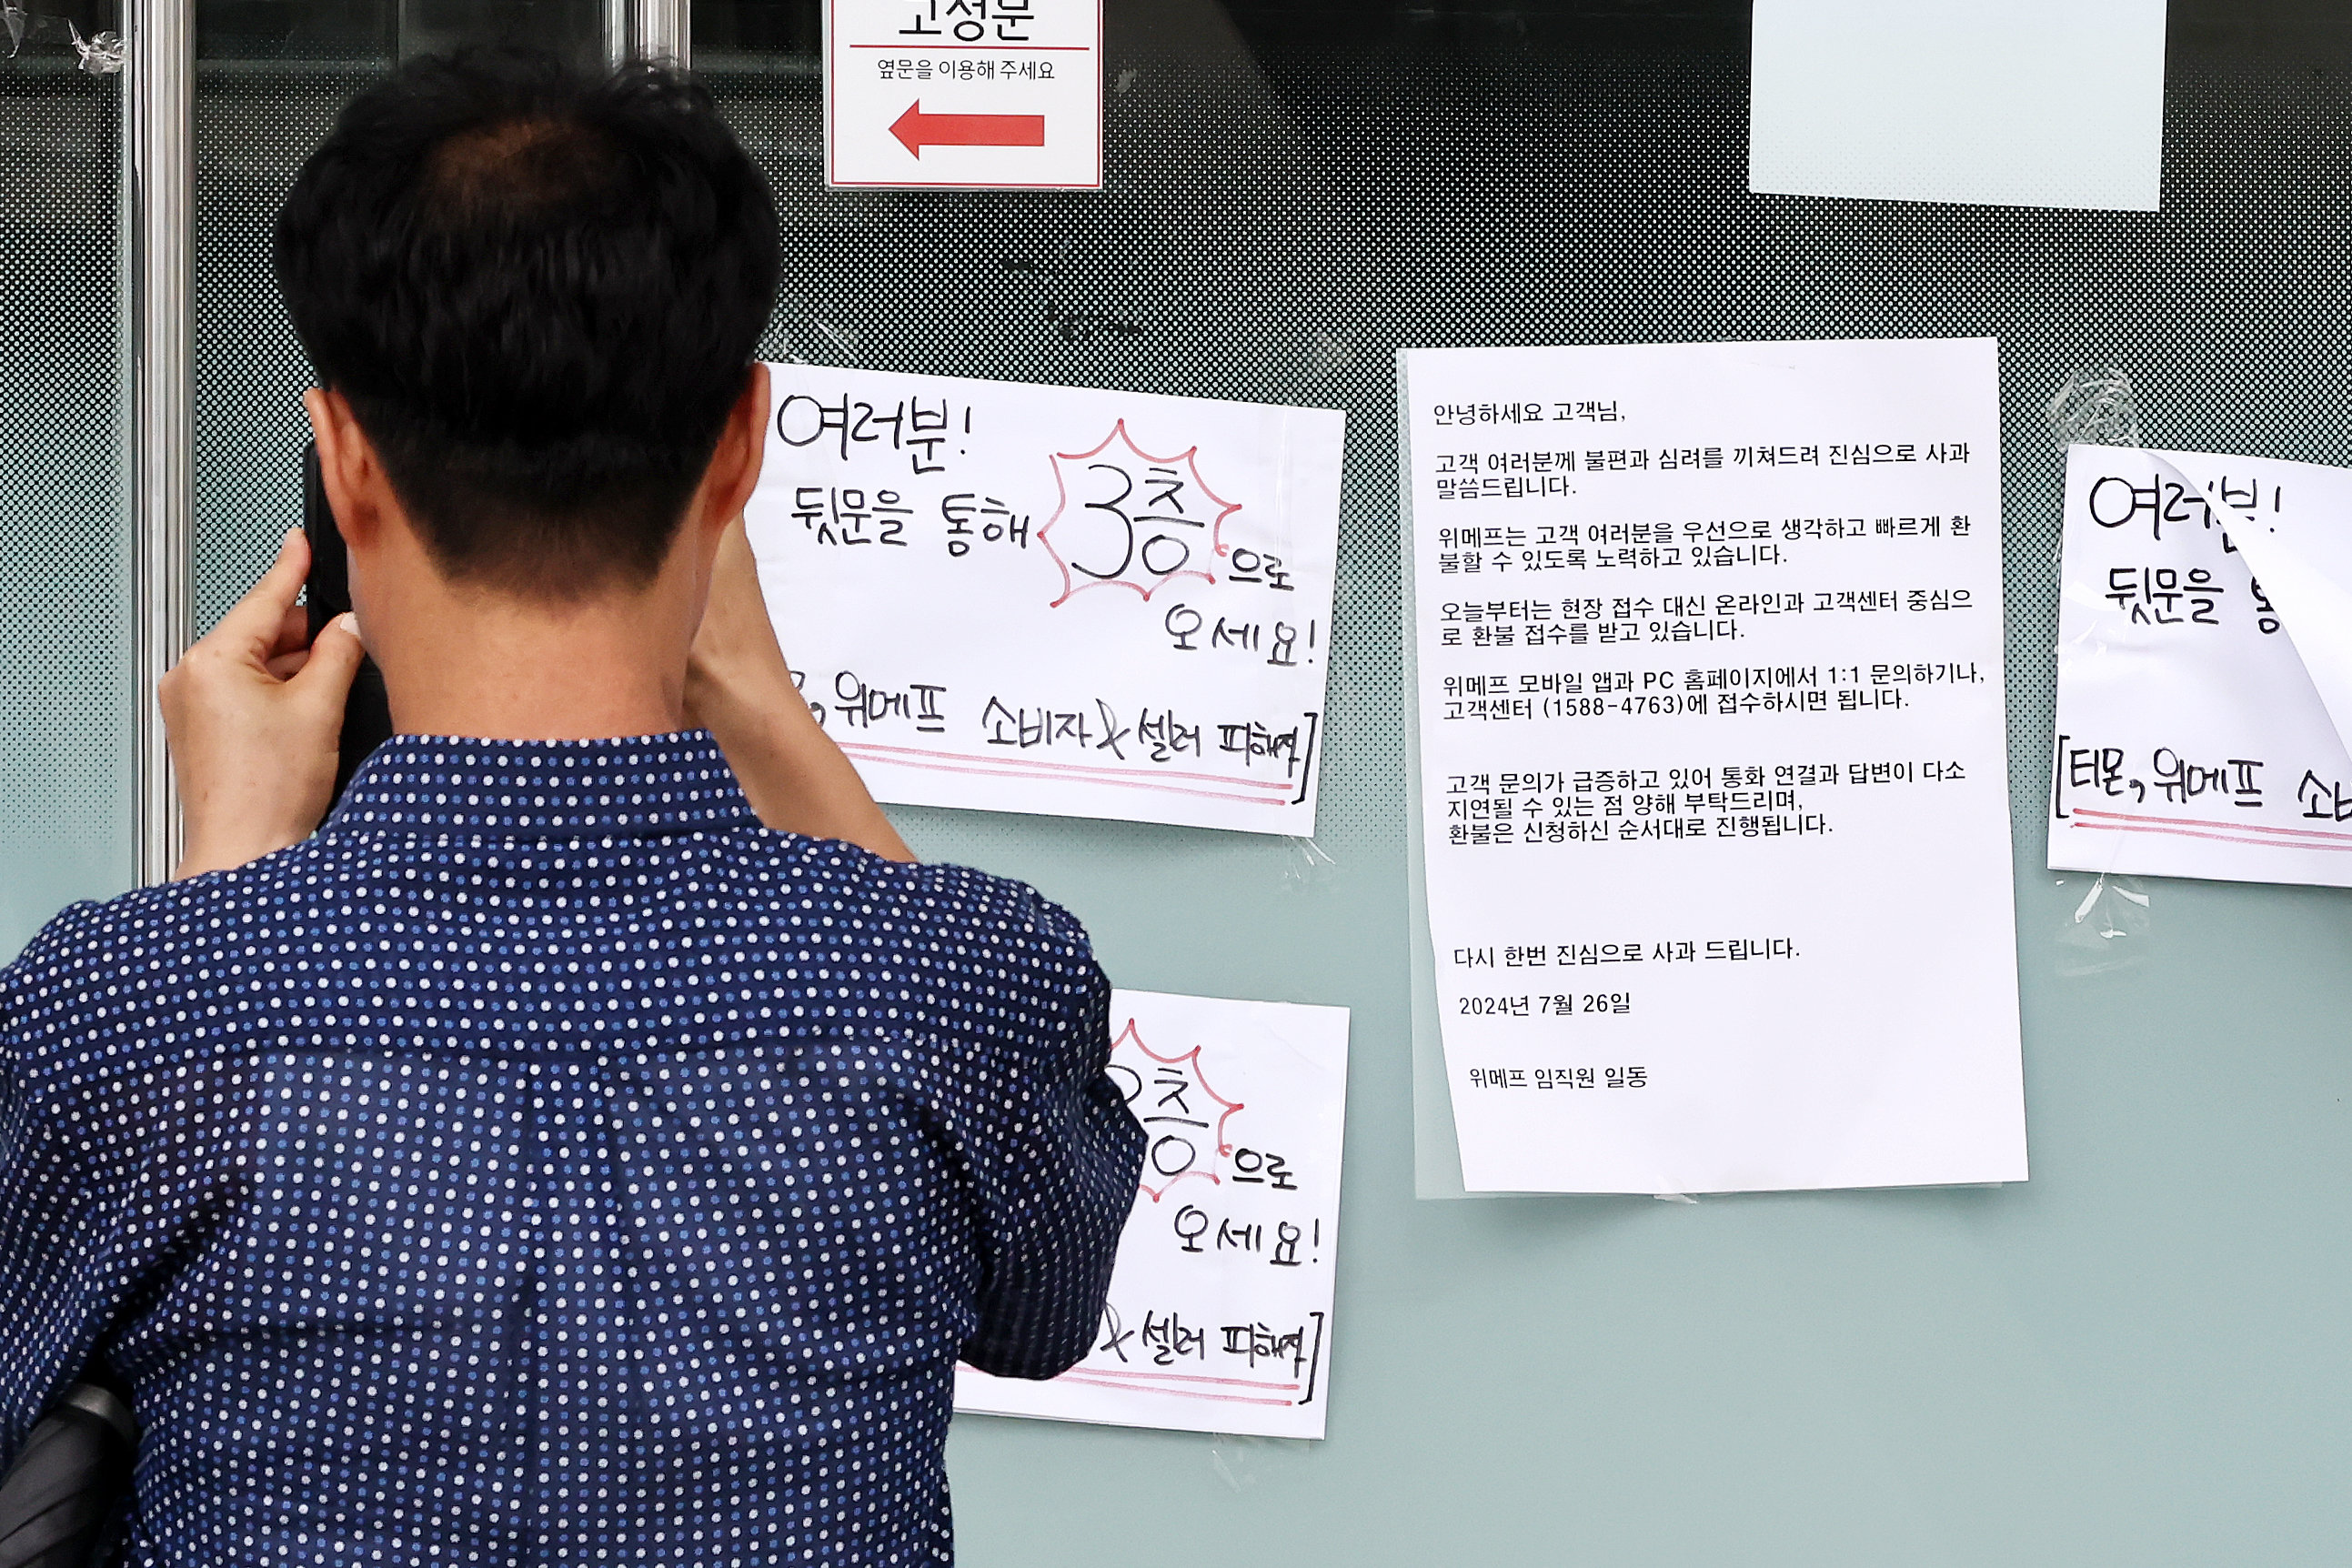 고정문
옆문을 이용해 주세요
여러분!
뒷문을 통해 3층으로
오세요!
위메프 소비자& 셀러 피해자]
안녕하세요 고객님,
고객 여러분께 불편과 심려를 끼쳐드려 진심으로 사과
말씀드립니다.
위메프는 고객 여러분을 우선으로 생각하고 빠르게 환
불할 수 있도록 노력하고 있습니다.
오늘부터는 현장 접수 대신 온라인과 고객센터 중심으
로 환불 접수를 받고 있습니다.
위메프 모바일 앱과 PC 홈페이지에서 1:1 문의하기나,
고객센터 (1588-4763)에 접수하시면 됩니다.
고객 문의가 급증하고 있어 통화 연결과 답변이 다소
지연될 수 있는 점 양해 부탁드리며,
환불은 신청하신 순서대로 진행됩니다.
다시 한번 진심으로 사과 드립니다.
2024년 7월 26일
위메프 임직원 일동
여러분!
뒷문을 통
[티몬, 위메프 소비
층으로
오세요!
& 셀러 피해자]